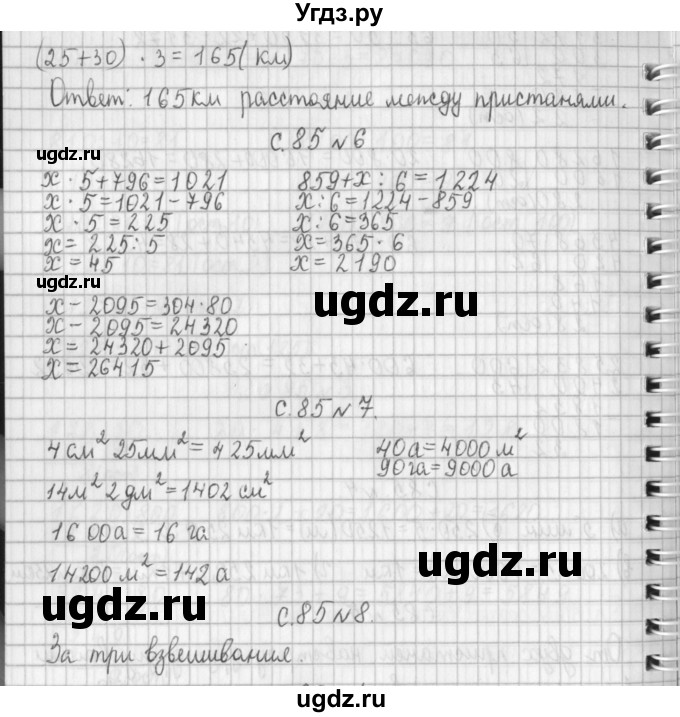 Угдз.ру
(25+30) · 3 = 165 (км)
Ответ: 165 км расстояние между пристанями.
с. 85 № 6
ugdz.ru
x · 5 + 796 = 1021
x · 5 = 1021 - 796
x · 5 = 225
x = 225 : 5
x = 45
ugdz.ru
859 + x : 6 = 1224
x : 6 = 1224 - 859
x : 6 = 365
x = 365 · 6
x = 2190
ugdz.ru
x - 2095 = 304 · 80
x - 2095 = 24320
x = 24320 + 2095
x = 26415
с. 85 № 7.
4 см² 25 мм² = 425 мм²
14 м² 2 дм² = 1402 см²
1600 а = 16 га
14200 м² = 142 а
40 а = 4000 м²
90 га = 9000 а
ugdz.ru
ugdz.ru
с. 85 № 8.
За три взвешивания.
ugdz.ru
ugdz.ru
ugdz.ru